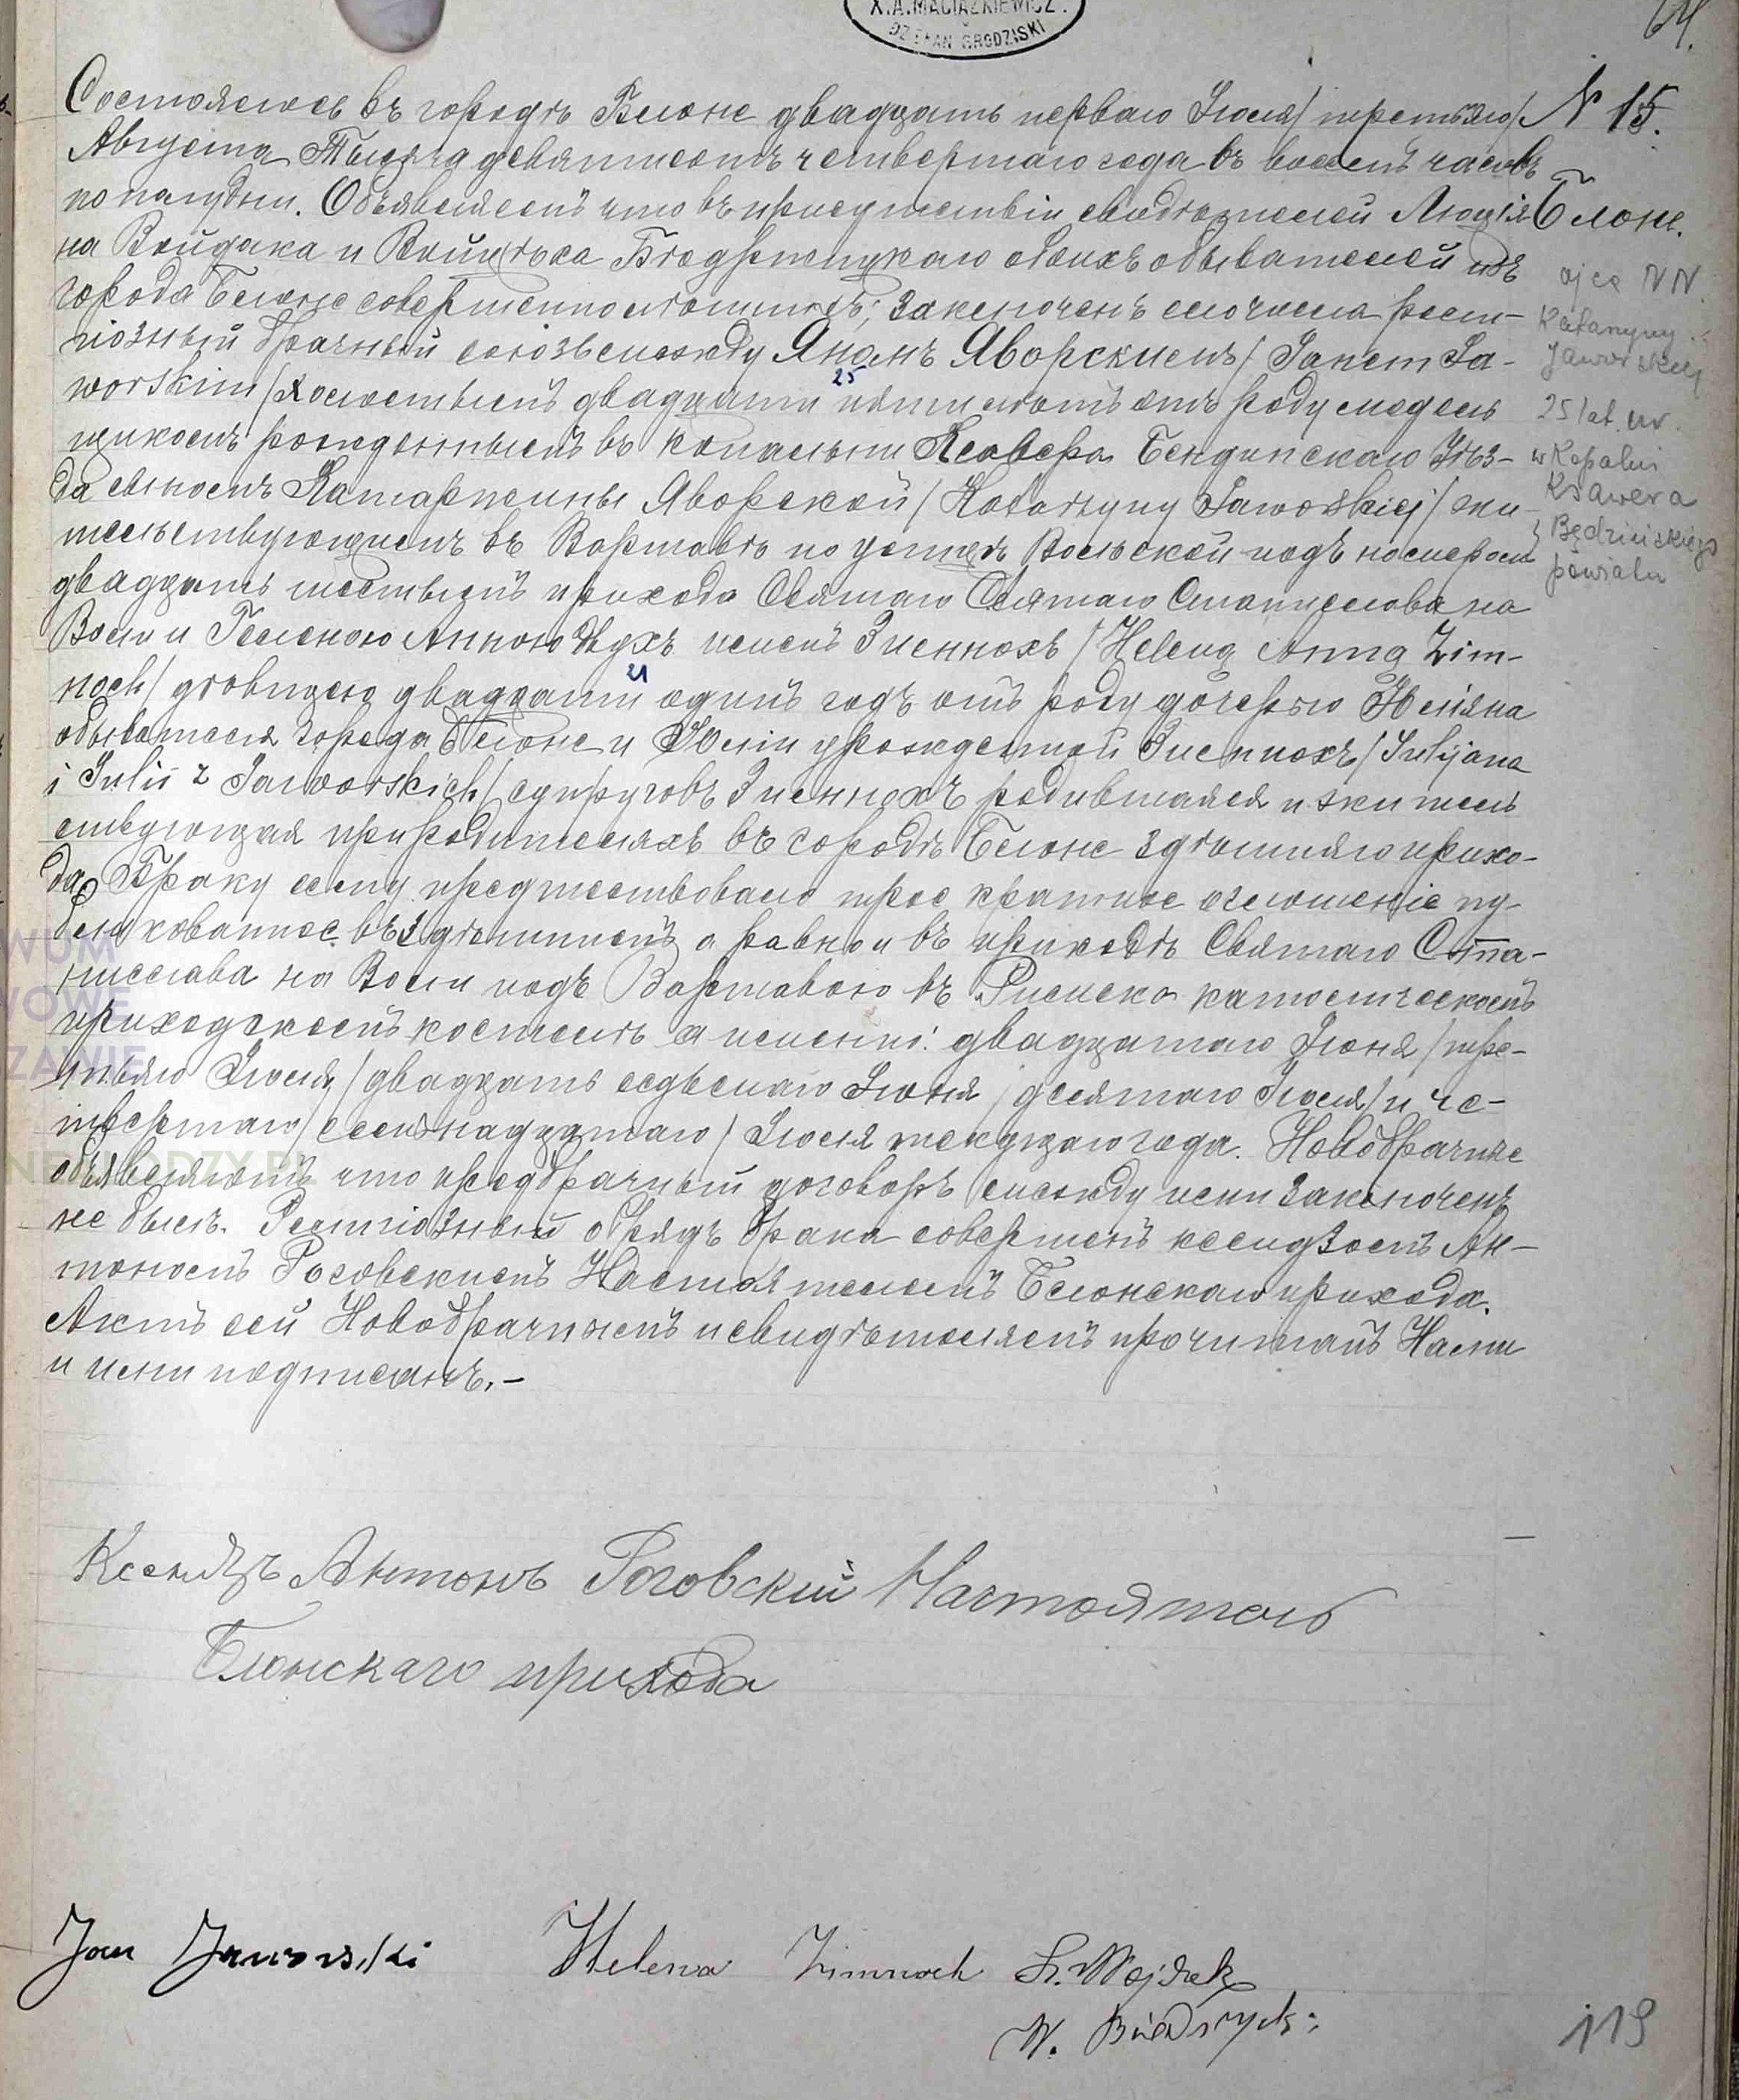 X.A.MACIĄZKIEWICZ.
DZIEKAN GRODZISKI
64.
Состоялось въ городѣ Блоне двадцать перваго Іюля/третьяго/
Августа Тысяча девятьсотъ четвертаго года въ восемь часовъ
по полудни. Объявляемъ что въ присутствіи свидѣтелей Люція-
на Войдака и Войцѣха Бѣдржицкаго обоихъ обывателей изъ
города Блоне совершеннолѣтнихъ; заключенъ сего числа рели-
гіозный брачный союзъ между Яномъ Яворскимъ/Janem Ja-
worskim/холостымъ двадцати пяти лѣтъ отъ роду
25
щикомъ рожденнымъ въ копальни Ксавера Бендинскаго Уѣз-
да сыномъ Катаржины Яворской/Katarzyny Jaworskiej/жи-
тельствующимъ въ Варшавѣ по улицѣ Вольской подъ номеромъ
двадцать шестымъ прихода Святаго Святаго Станислава на
Воли и Геленою Анною двухъ именъ Зимнохъ/Heleną Anną Zim-
noch/дѣвицею двадцати одинъ годъ отъ роду дочерью Юліяна
21
обывателя города Блоне и Юліи урожденной Зимнохъ/Julijana
i Julii z Jaworskich/супруговъ Зимнохъ родившаяся и житель
ствующая при родителяхъ въ городѣ Блоне здѣшняго прихо-
да. Браку сему предшествовало трое кратное оглашеніе пу-
бликованное въ здѣшнемъ а равно и въ приходѣ Святаго Ста-
нислава на Воли подъ Варшавою въ Римско католическомъ
приходскомъ костелѣ а именно: двадцатаго Іюня/тре-
тьяго Іюля/двадцать седьмаго Іюня/десятаго Іюля/и че-
твертаго/семнадцатаго/Іюля текущаго года. Новобрачные
объявляютъ что предбрачный договоръ между ими заключенъ
не былъ. Религіозный обрядъ брака совершенъ ксендзомъ Ан-
тономъ Роговскимъ Настоятелемъ Блонскаго прихода.
Актъ сей Новобрачнымъ и свидѣтелямъ прочитанъ Нами
и ими подписанъ.-
N 15.
Блоне.
ojca NN.
Katarzyny
Jaworskiej
25 lat. ur.
w Kopalni
Ksawera
Będzińskiego
powiatu
Ксендзъ Антонъ Роговскій Настоятель
Блонскаго прихода
Jan Jaworski Helena Zimnoch L. Wojdak
W. Biedrzycki
119